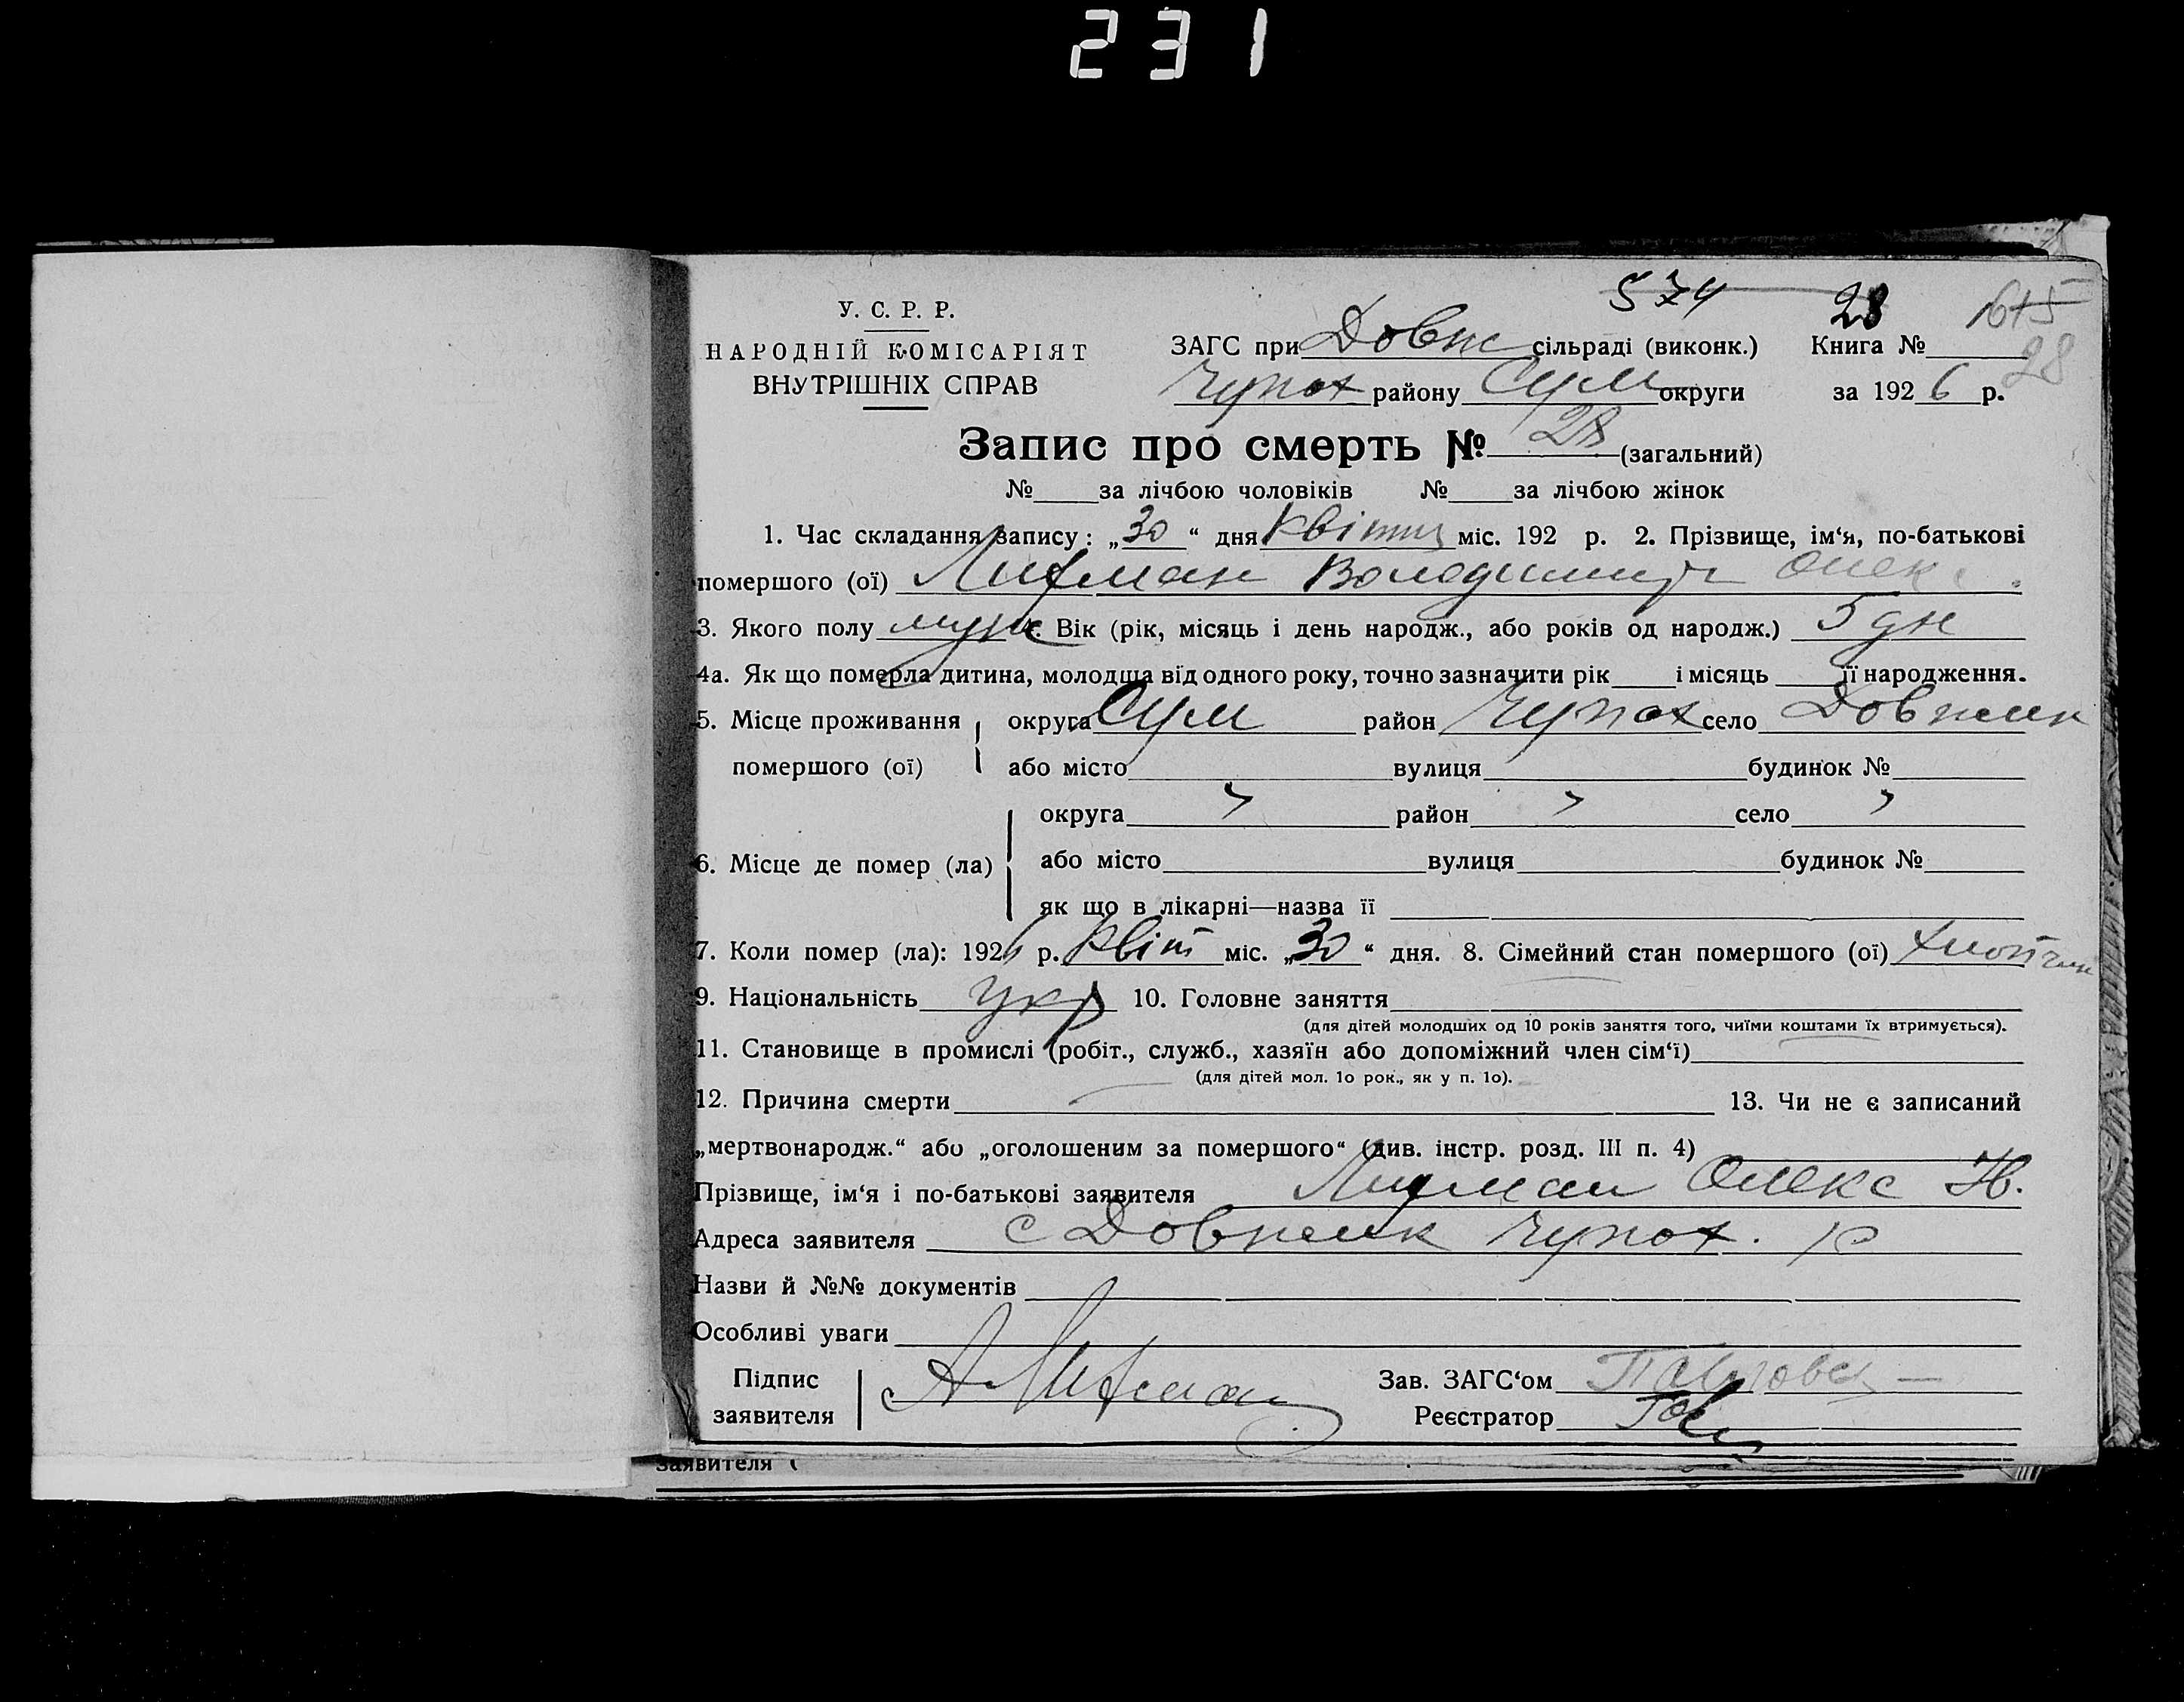 231
574 28 1615
У. С. Р. Р.
НАРОДНІЙ КОМІСАРІЯТ
ВНУТРІШНІХ СПРАВ
ЗАГС при Довж сільраді (виконк.) Книга № 28
Чупах району Сум округи за 1926 р.
Запис про смерть № 28 (загальний)
№ за лічбою чоловіків № за лічбою жінок
1. Час складання запису: „30“ дня квітня міс. 192 р. 2. Прізвище, ім‘я, по-батькові
помершого (ої) Литман Володимир Олекс.
3. Якого полу муж 4. Вік (рік, місяць і день народж., або років од народж.) 5 дн
4а. Як що померла дитина, молодша від одного року, точно зазначити рік і місяць її народження.
5. Місце проживання округа Сум район Чупах село Довжик
помершого (ої) або місто вулиця будинок №
округа " район " село "
6. Місце де помер (ла) або місто вулиця будинок №
як що в лікарні—назва її
7. Коли помер (ла): 1926 р. квіт міс. „30“ дня. 8. Сімейний стан помершого (ої) хлопчик
9. Національність укр 10. Головне заняття
(для дітей молодших од 10 років заняття того, чиїми коштами їх втримується).
11. Становище в промислі (робіт., служб., хазяїн або допоміжний член сім‘ї)
(для дітей мол. 1о рок., як у п. 1о).
12. Причина смерти 13. Чи не є записаний
„мертвонародж.“ або „оголошеним за помершого“ (див. інстр. розд. III п. 4)
Прізвище, ім‘я і по-батькові заявителя Литман Олекс Ів.
Адреса заявителя с Довжик Чупах. р
Назви й №№ документів
Особливі уваги
Підпис
заявителя А Литман
Зав. ЗАГС‘ом
Реєстратор
заявителя